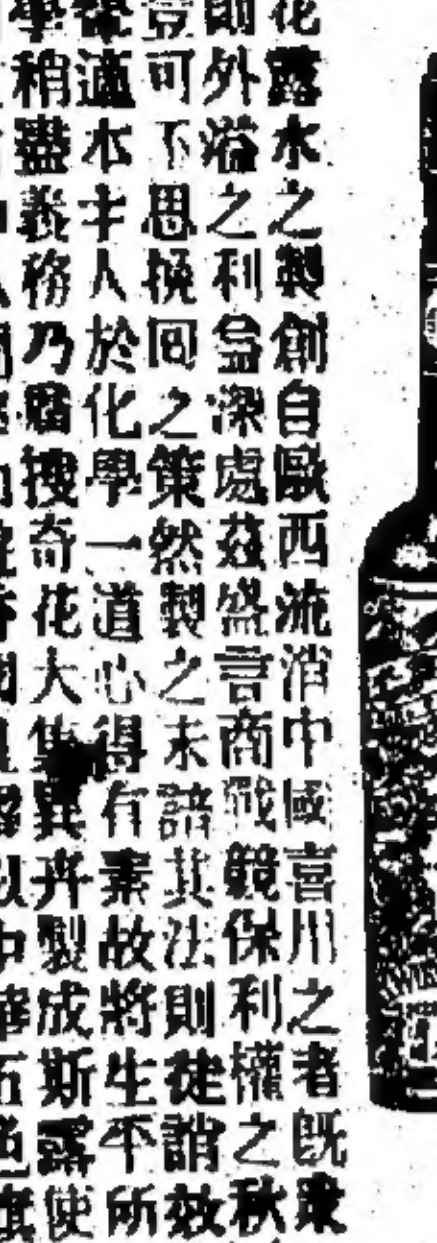 花露水之製創自歐西流消中國喜用之者既衆
則外溢之利益深處茲盛言商戰競保利權之秋
豈可不思挽回之策然製之未諳其法則徒誚效
顰適本主人於化學一道心得有素故將生平所
學稍盡義務乃廣搜奇花大集異卉製成斯露使